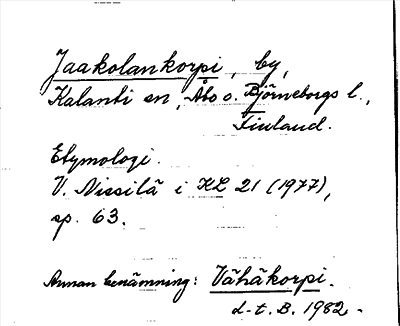 Jaakolankorpi, by,
Kalanti sn, Åbo o. Björneborgs l.,
Finland.
Etymologi.
V. Nissilä i KL 21 (1977),
sp. 63.
Annan benämning: Vähäkorpi.
d-t. B. 1982.